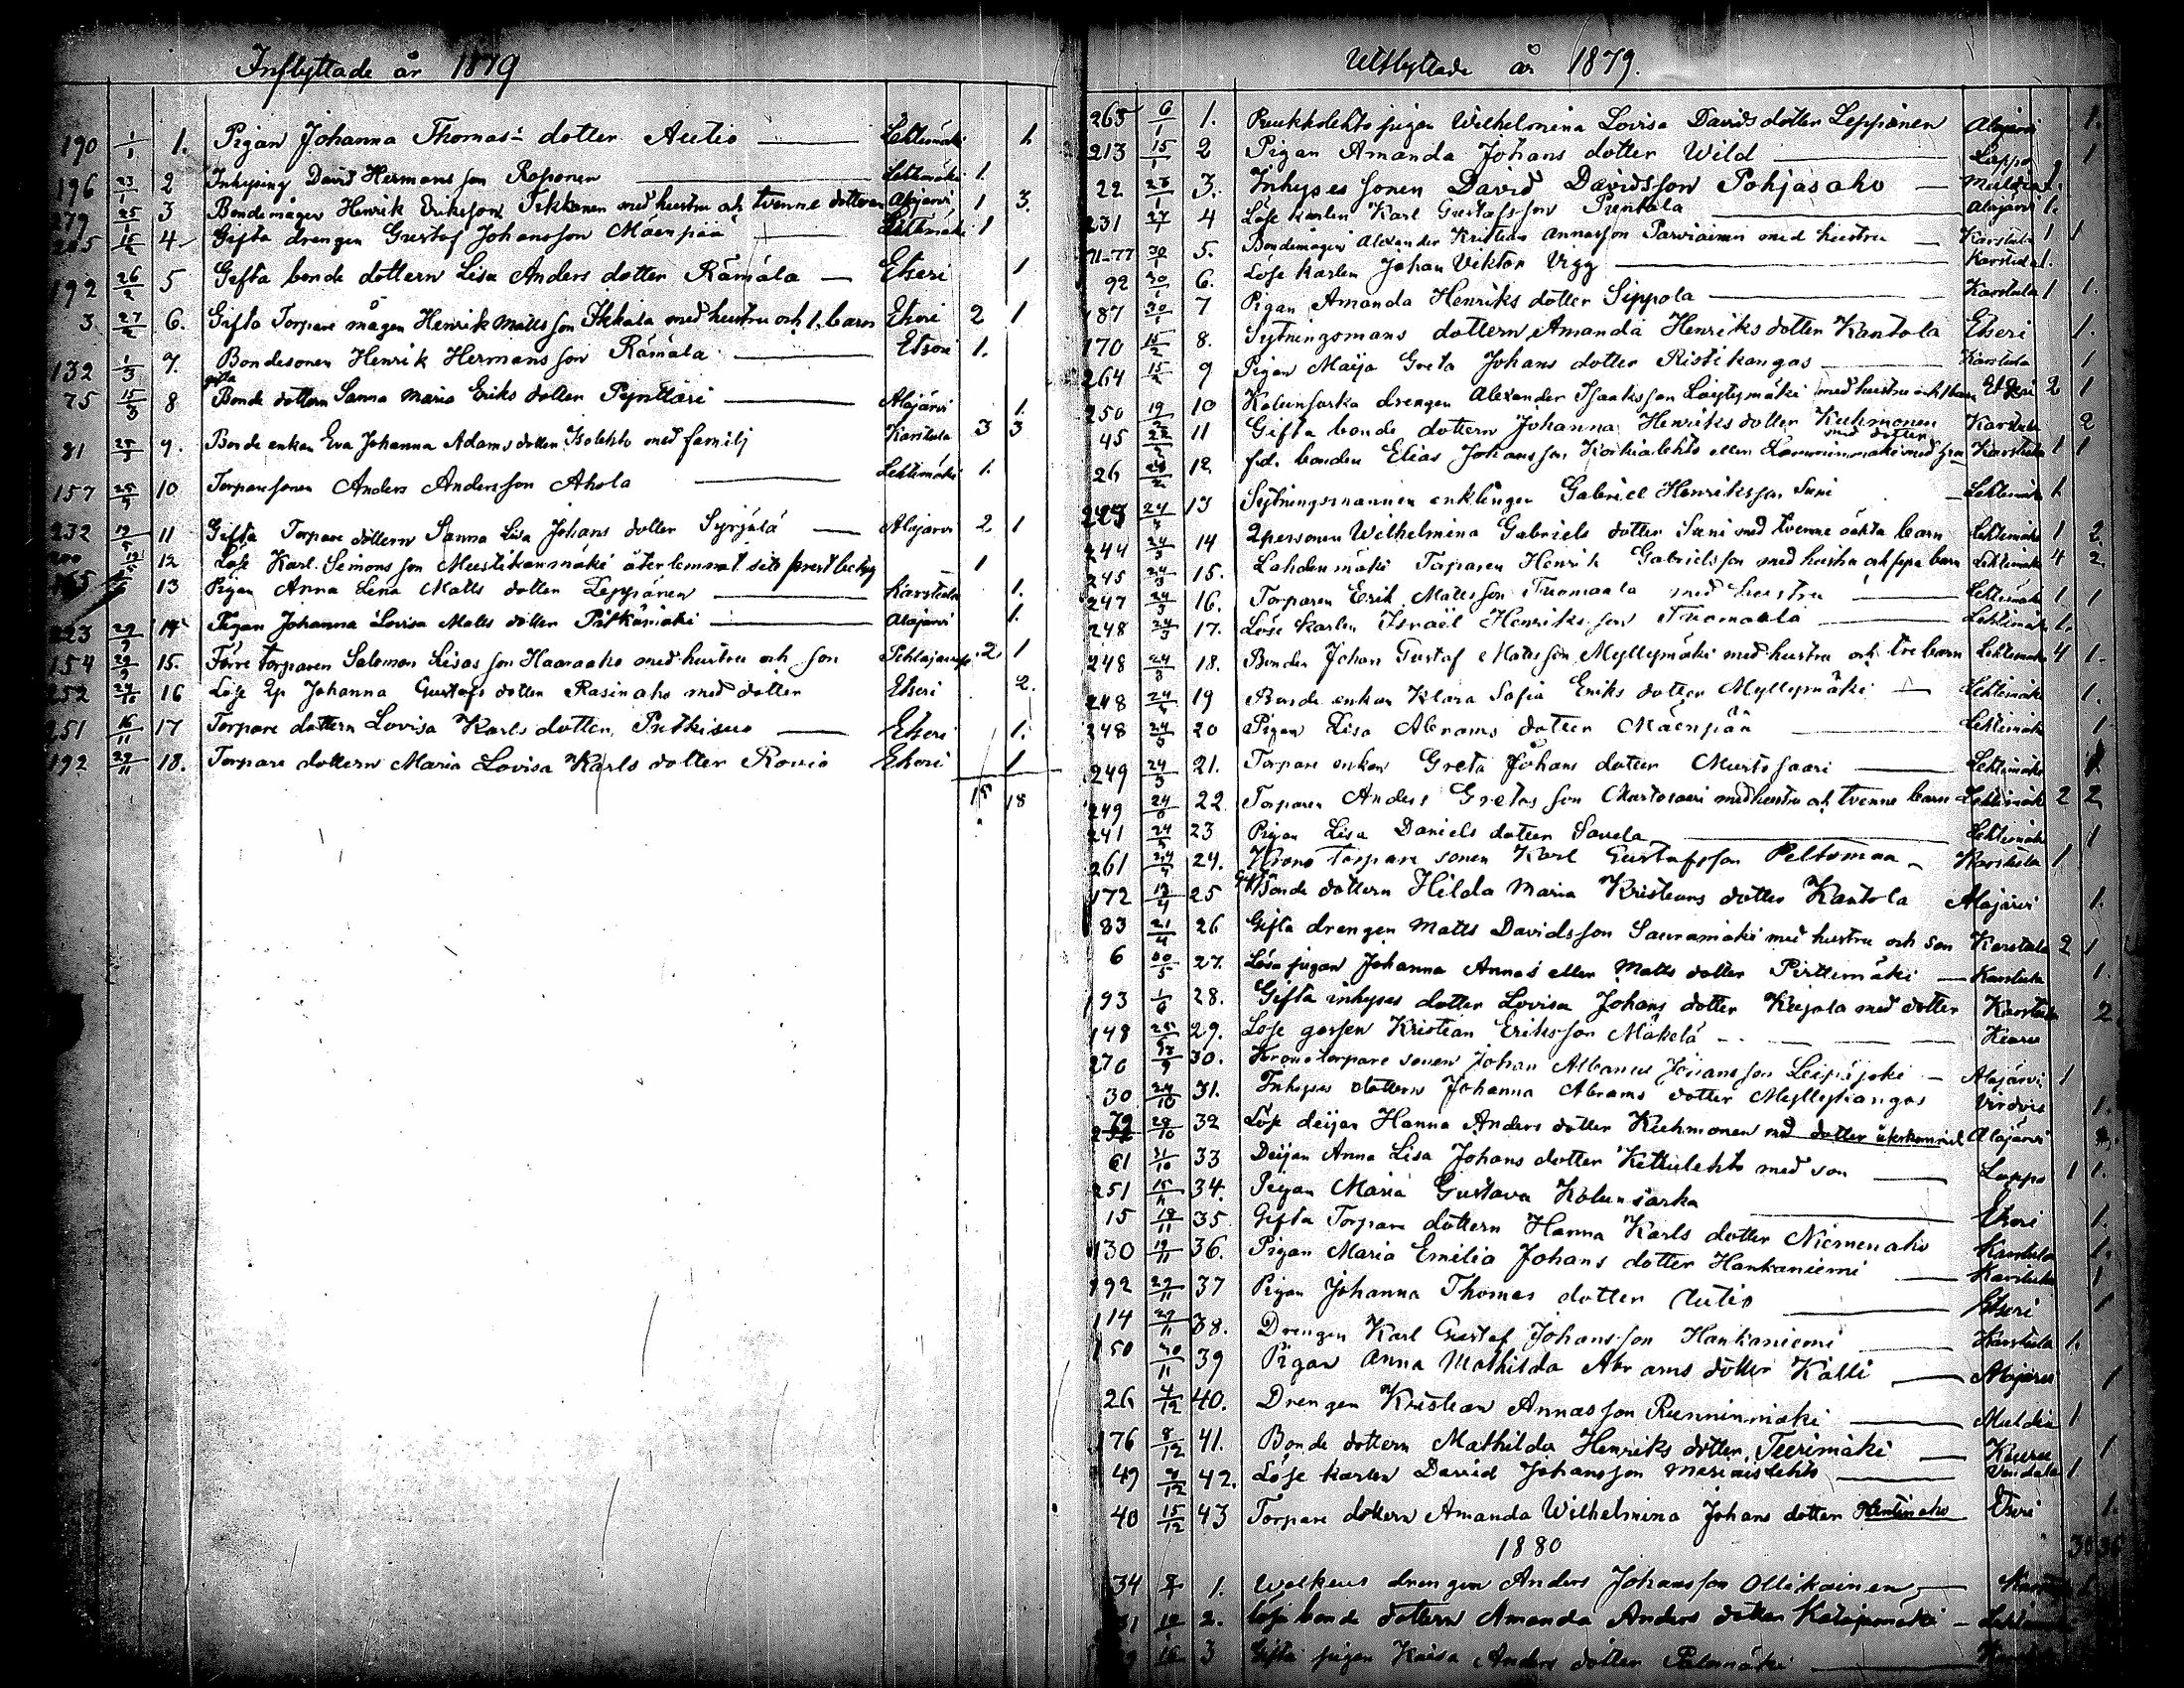 Inflyttade år 1879
190 1/1 1. Pigan Johanna Thomas dotter Autio Lehtimäki 1.
196 23/1 2 Inhysing David Hermansson Roponen Lehtimäki 1.
179 25/1 3 Bondemågen Henrik Eriksson Pekkanen med hustru och tvenne döttrar Alajärvi 1 3.
4 Gifta drengen Gustaf Johansson Mäenpää Lehtimäki 1
192 26/2 5 Gifta bonde dottern Lisa Anders dotter Rämälä Etseri 1
3. 27/2 6. Gifta Torpare mågen Henrik Mattsson Ikkala med hustru och 1. barn Etseri 2 1
132 1/3 7. Bondesonen Henrik Hermansson Rämälä Etseri 1.
75 15/3 8 gifta Bonde dottern Sanna Maria Eriks dotter Pynttäri Alajärvi 1.
81 25/3 9. Bonde enkan Eva Johanna Adams dotter Isolehto med familj Karstula 3 3
157 10 Torparesonen Anders Andersson Ahola Lehtimäki 1.
232 11 Gifta Torpare dottern Sanna Lisa Johans dotter Syrjälä Alajärvi 2 1
12 Löse Karl Simonsson Mustikanmäki återlemnat sitt prestbetyg 1
13 Pigan Anna Lena Matts dotter Leppänen Karstula 1.
223 14 Pigan Johanna Lovisa Matts dotter Pitkämäki Alajärvi 1.
154 29/9 15. Förre torparen Salomon Lisasson Haaraaho med hustru och son 2. 1
252 16 Löse Qp Johanna Gustafs dotter Rasinaho med dotter Etseri 2.
251 16/11 17 Torpare dottern Lovisa Karls dotter Putkisuo Etseri 1.
192 29/11 18. Torpare dottern Maria Lovisa Karls dotter Rovio Etseri 1
18
Utflyttade år 1879.
265 6/1 1. Puukkolehto pigan Wilhelmina Lovisa Davids dotter Leppänen Alajärvi 1.
213 15/1 2 Pigan Amanda Johans dotter Wild Lappo 1
22 3. Inhyses sonen David Davidsson Pohjasaho Muldia 1.
231 27/1 4 Löse karlen Karl Gustafsson Puntala Alajärvi 1.
71-77 30/1 5. Bondemågen Alexander Kristian Annasson Parviainen med hustru Karstula 1 1
92 30/1 6. Löse karlen Johan Viktor Vigg Karstula 1.
187 30/1 7 Pigan Amanda Henriks dotter Sippola Karstula 1 1.
170 15/2 8. Sytningsmans dottern Amanda Henriks dotter Kantola Etseri 1.
264 15/2 9 Pigan Maija Greta Johans dotter Ristikangas Karstula 1
250 19/2 10 Kolunsarka drengen Alexander Isaksson Löytymäki med hustru och 1 barn Etseri 2 1
45 22/2 11 Gifta bonde dottern Johanna Henriks dotter Kuhmonen med dotter Karstula 2
26 24/2 12. f.d. bonden Elias Johansson Koivulehto eller Karstula 1 1
243 24/3 13 Sytningsmannen enklingen Gabriel Henriksson Suni Lehtimäki 1
244 24/3 14 Qpersonen Wilhelmina Gabriels dotter Suni med tvenne oäkta barn Lehtimäki 1 2.
245 24/3 15. Lahdenmäki Torparen Henrik Gabrielsson med hustru och barn Lehtimäki 4 2
247 24/3 16. Torparen Erik Mattsson Tuomaala med hustru Lehtimäki 1 1
248 24/3 17. Löse karlen Israël Henriksson Tuomaala Lehtimäki 1.
248 24/3 18. Bonden Johan Gustaf Mattsson Myllymäki med hustru och tre barn Lehtimäki 4 1.
248 24/3 19 Bonde enkan Klara Sofia Eriks dotter Myllymäki Lehtimäki 1.
248 24/3 20 Pigan Lisa Abrams dotter Mäenpää Lehtimäki 1
249 24/3 21. Torpare enkan Greta Johans dotter Murtosaari Lehtimäki 1
249 24/3 22 Torparen Anders Gretasson Murtosaari med hustru och tvenne barn Lehtimäki 2 2
241 24/3 23 Pigan Lisa Daniels dotter Savela Lehtimäki 1
261 24. Krono torpare sonen Karl Gustafsson Peltomaa Karstula 1
172 13/4 25 Gifta Bonde dottern Hilda Maria Kristians dotter Kantola Alajärvi 1.
83 21/4 26 Gifta drengen Matts Davidsson Sauramäki med hustru och son Karstula 2 1
6 30/5 27. Lösa pigan Johanna Annas eller Matts dotter Pirttimäki Karstula 1.
193 1/6 28. Gifta inhyses dotter Lovisa Johans dotter Kujala med dotter Karstula 2
148 29. Löse gossen Kristian Eriksson Mäkelä Keuru
270 30. Kronotorpare sonen Johan Albanus Johansson Leipäjoki Alajärvi 1
30 24/10 31. Inhyses dottern Johanna Abrams dotter Myllykangas Virdois 1.
79 28/10 32 Löse deijan Hanna Anders dotter Kuhmonen med dotter återkommit Alajärvi
61 31/10 33 Deijan Anna Lisa Johans dotter Kettulehto med son Lappo 1 1.
251 15/11 34. Pigan Maria Gustava Kolunsarka Etseri 1.
15 18/11 35 Gifta Torpare dottern Hanna Karls dotter Niemenaho Karstula 1.
130 19/11 36. Pigan Maria Emilia Johans dotter Hankaniemi Karstula 1
192 29/11 37 Pigan Johanna Thomas dotter Autio Etseri 1
114 29/11 38. Drengen Karl Gustaf Johansson Hankaniemi Karstula 1.
150 30/11 39 Pigan Anna Mathilda Abrams dotter Kalli Alajärvi 1
26 4/12 40. Drengen Kristian Annasson Runninmäki Muldia 1
176 8/12 41. Bonde dottern Mathilda Henriks dotter Teerimäki Keuru 1
49 9/12 42. Löse karlen David Johansson Vindala 1
40 15/12 43 Torpare dottern Amanda Wilhelmina Johans dotter Etseri 1.
1880
34 1. drengen Anders Johansson Ollikainen
2. Löse bonde dottern Amanda Anders dotter Katajamäki
3 Gifta pigan Kaisa Anders dotter Palomäki